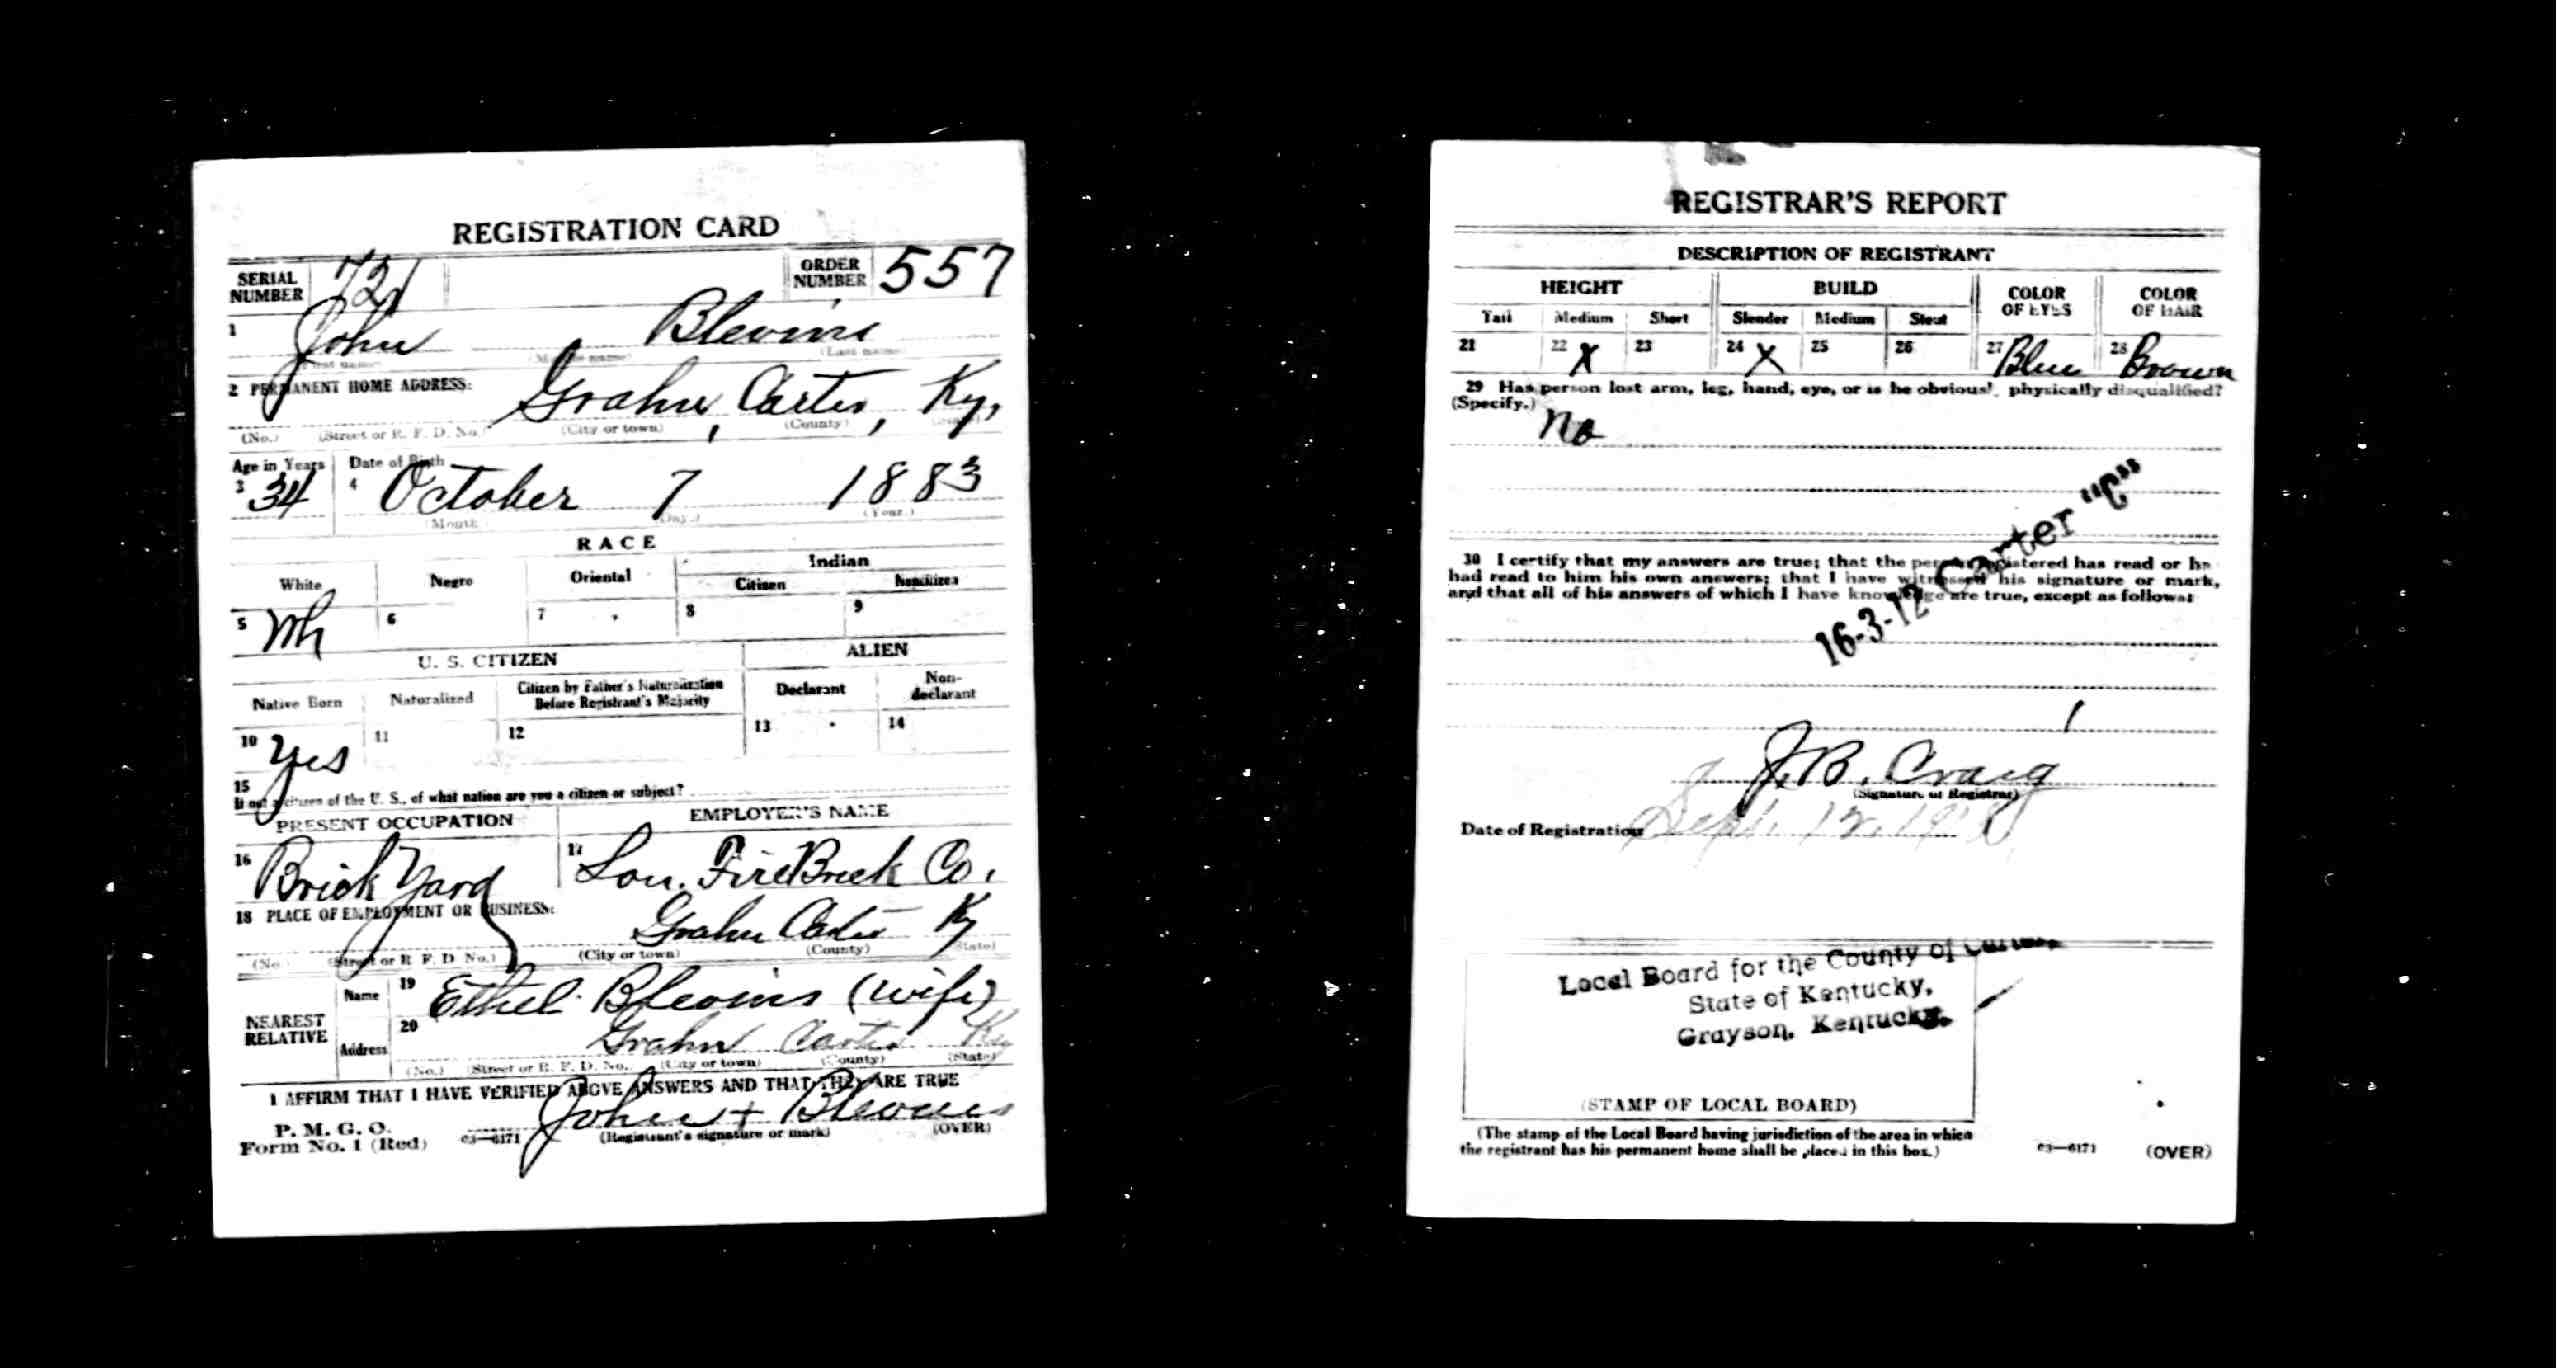 REGISTRATION CARD
SERIAL NUMBER 721 ORDER NUMBER 557
1 John Blevins
(First name) (Middle name) (Last name)
2 PERMANENT HOME ADDRESS: Grahn, Carter, Ky,
(No.) (Street or R. F. D. No.) (City or town) (County) (State)
Age in Years Date of Birth
3 34 4 October 7 1883
(Month) (Day.) (Year.)
RACE
White Negro Oriental Indian
Citizen Noncitizen
5 Wh 6 7 8 9
U. S. CITIZEN ALIEN
Native Born Naturalized Citizen by Father's Naturalization Before Registrant's Majority Declarant Non-declarant
10 Yes 11 12 13 14
15
If not a citizen of the U. S., of what nation are you a citizen or subject?
PRESENT OCCUPATION EMPLOYER'S NAME
16 Brick Yard 17 Lou. Fire Brick Co.
18 PLACE OF EMPLOYMENT OR BUSINESS:
Grahn Carter Ky
(No.) (Street or R. F. D. No.) (City or town) (County) (State)
NEAREST RELATIVE
Name 19 Ethel Blevins (wife)
Address 20 Grahn Carter Ky
(No.) (Street or R. F. D. No.) (City or town) (County) (State)
I AFFIRM THAT I HAVE VERIFIED ABOVE ANSWERS AND THAT THEY ARE TRUE
P. M. G. O.
Form No. 1 (Red) 03—6171 John + Blevins
(Registrant's signature or mark) (OVER)
REGISTRAR'S REPORT
DESCRIPTION OF REGISTRANT
HEIGHT BUILD COLOR OF EYES COLOR OF HAIR
Tall Medium Short Slender Medium Stout
21 22 X 23 24 X 25 26 27 Blue 28 Brown
29 Has person lost arm, leg, hand, eye, or is he obviously physically disqualified?
(Specify.) No
30 I certify that my answers are true; that the person registered has read or has
had read to him his own answers; that I have witnessed his signature or mark,
and that all of his answers of which I have knowledge are true, except as follows:
16-3-12 Carter "C"
J. B. Craig
(Signature of Registrar)
Date of Registration Sept. 12, 1918
Local Board for the County of Carter,
State of Kentucky,
Grayson, Kentucky.
(STAMP OF LOCAL BOARD)
(The stamp of the Local Board having jurisdiction of the area in which
the registrant has his permanent home shall be placed in this box.)
03—6171 (OVER)